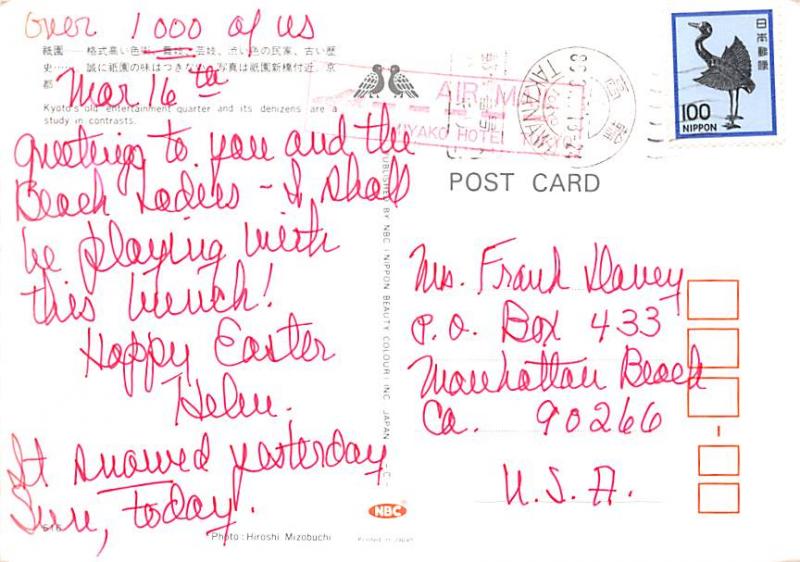 over 1000 of us
祇園——格式高い色街、舞妓、芸妓、渋い色の民家、古い歴
史……誠に祇園の味はつきない。写真は祇園新橋付近。京
都
Mar 16th
Kyoto's old entertainment quarter and its denizens are a
study in contrasts.
greetings to you and the
Beach Ladies - I shall
be playing with
this bunch!
Happy Easter
Helen.
It snowed yesterday
Sun, today.
516
Photo: Hiroshi Mizobuchi
PUBLISHED BY NBC (NIPPON BEAUTY COLOUR) INC. JAPAN
NBC
Printed in Japan
AIR
MIYAKO HOTEL
TAKANAWA
日本郵便
100
NIPPON
POST CARD
Mrs. Frank Davey
P.O. Box 433
Manhattan Beach
Ca. 90266
U.S.A.